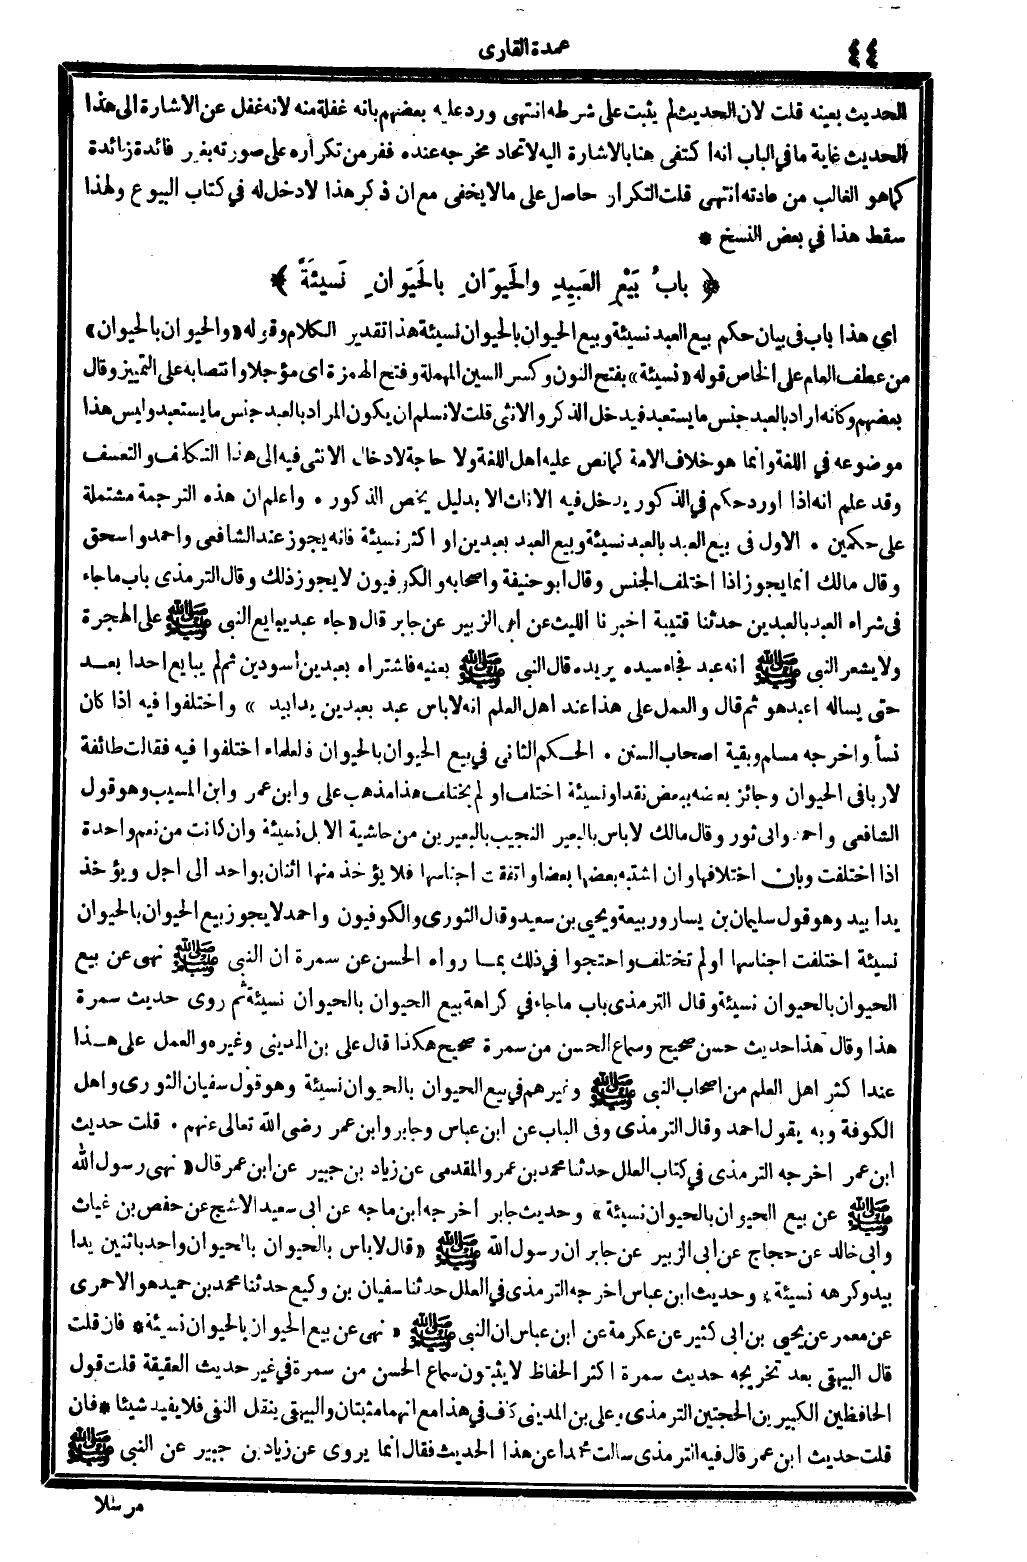 ٤٤
عمدة القارى
الحديث بعينه قلت لان الحديث لم يثبت على شرطه انتهى ورد عليه بعضهم بانه غفلة منه لانه غفل عن الاشارة الى هذا
الحديث غاية ما في الباب انه اكتفى هنا بالاشارة اليه لاتحاد مخرجه عنده ففر من تكراره على صورته بغير فائدة زائدة
كما هو الغالب من عادته انتهى قلت التكرار حاصل على مالا يخفى مع ان ذكر هذا لا دخل له في كتاب البيوع ولهذا
سقط هذا في بعض النسخ *
﴿ بابُ بَيْعِ العَبِيدِ والحَيَوَانِ بالحَيَوَانِ نَسيئَةً ﴾
اي هذا باب فى بيان حكم بيع العبد نسيئة وبيع الحيوان بالحيوان نسيئة هذا تقدير الكلام وقوله «والحيوان بالحيوان»
من عطف العام على الخاص قوله «نسيئة» بفتح النون وكسر السين المهملة وفتح الهمزة اى مؤجلا وانتصابه على التمييز وقال
بعضهم وكانه اراد بالعبد جنس ما يستعبد فيدخل الذكر والانثى قلت لا نسلم ان يكون المراد بالعبد جنس ما يستعبد وليس هذا
موضوعه في اللغة وانما هو خلاف الامة كما نص عليه اهل اللغة ولا حاجة لادخال الانثى فيه الى هذا التكلف والتعسف
وقد علم انه اذا اورد حكم في الذكور يدخل فيه الاناث الا بدليل يخص الذكور • واعلم ان هذه الترجمة مشتملة
على حكمين • الاول فى بيع العبد بالعبد نسيئة وبيع العبد بعبدين او اكثر نسيئة فانه يجوز عند الشافعى واحمد واسحق
وقال مالك انما يجوز اذا اختلف الجنس وقال ابو حنيفة واصحابه والكوفيون لا يجوز ذلك وقال الترمذى باب ما جاء
فى شراء العبد بالعبدين حدثنا قتيبة اخبرنا الليث عن ابى الزبير عن جابر قال «جاء عبد يبايع النبى ﷺ على الهجرة
ولا يشعر النبى ﷺ انه عبد فجاء سيده يريده قال النبى ﷺ بعنيه فاشتراه بعبدين اسودين ثم لم يبايع احدا بعد
حتى يساله اعبد هو ثم قال والعمل على هذا عند اهل العلم انه لا باس عبد بعبدين يدا بيد » واختلفوا فيه اذا كان
نسأ واخرجه مسلم وبقية اصحاب السنن • الحكم الثانى في بيع الحيوان بالحيوان فالعلماء اختلفوا فيه فقالت طائفة
لا ربا فى الحيوان وجائز بعضه ببعض نقدا ونسيئة اختلف او لم يختلف هذا مذهب على وابن عمر وابن المسيب وهو قول
الشافعى واحمد وابى ثور وقال مالك لا باس بالبعير النجيب بالبعيرين من حاشية الابل نسيئة وان كانت من نعم واحدة
اذا اختلفت وبان اختلافها وان اشتبه بعضها بعضا واتفقت اجناسها فلا يؤخذ منها اثنان بواحد الى اجل ويؤخذ
يدا بيد وهو قول سليمان بن يسار وربيعة ويحيى بن سعيد وقال الثورى والكوفيون واحمد لا يجوز بيع الحيوان بالحيوان
نسيئة اختلفت اجناسها او لم تختلف واحتجوا في ذلك بما رواه الحسن عن سمرة ان النبى ﷺ نهى عن بيع
الحيوان بالحيوان نسيئة وقال الترمذى باب ما جاء في كراهة بيع الحيوان بالحيوان نسيئة ثم روى حديث سمرة
هذا وقال هذا حديث حسن صحيح وسماع الحسن من سمرة صحيح هكذا قال على بن المدينى وغيره والعمل على هذا
عند اكثر اهل العلم من اصحاب النبى ﷺ وغيرهم في بيع الحيوان بالحيوان نسيئة وهو قول سفيان الثورى واهل
الكوفة وبه يقول احمد وقال الترمذى وفى الباب عن ابن عباس وجابر وابن عمر رضى الله تعالى عنهم • قلت حديث
ابن عمر اخرجه الترمذى في كتاب العلل حدثنا محمد بن عمرو المقدمى عن زياد بن جبير عن ابن عمر قال «نهى رسول الله
ﷺ عن بيع الحيوان بالحيوان نسيئة» وحديث جابر اخرجه ابن ماجه عن ابى سعيد الاشج عن حفص بن غياث
وابى خالد عن حجاج عن ابى الزبير عن جابر ان رسول الله ﷺ «قال لا باس بالحيوان بالحيوان واحد باثنين يدا
بيد وكرهه نسيئة» وحديث ابن عباس اخرجه الترمذى في العلل حدثنا سفيان بن وكيع حدثنا محمد بن حميد هو الاحمرى
عن معمر عن يحيى بن ابى كثير عن عكرمة عن ابن عباس ان النبى ﷺ «نهى عن بيع الحيوان بالحيوان نسيئة* فان قلت
قال البيهقى بعد تخريجه حديث سمرة اكثر الحفاظ لا يثبتون سماع الحسن من سمرة في غير حديث العقيقة قلت قول
الحافظين الكبيرين الحجتين الترمذى وعلى بن المدينى كاف في هذا مع انهما مثبتان والبيهقى ينقل النفى فلا يفيد شيئا * فان
قلت حديث ابن عمر قال فيه الترمذى سالت محمدا عن هذا الحديث فقال انما يروى عن زياد بن جبير عن النبى ﷺ
مرسلا